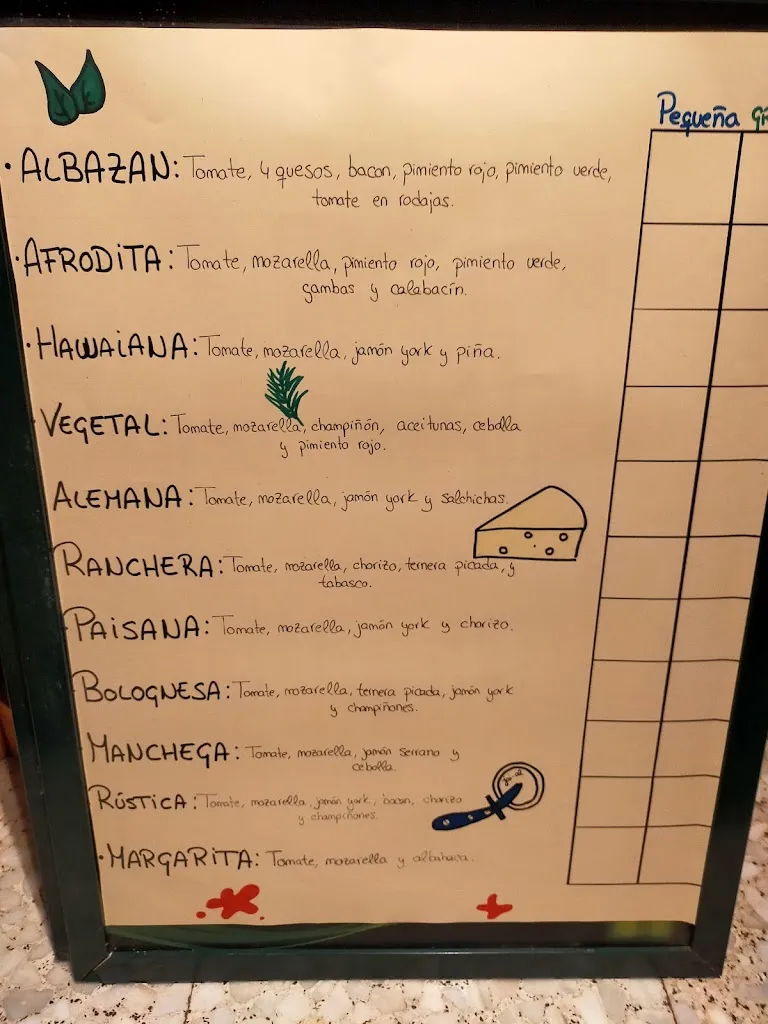 Pequeña
· ALBAZAN: Tomate, 4 quesos, bacon, pimiento rojo, pimiento verde,
tomate en rodajas.
· AFRODITA: Tomate, mozarella, pimiento rojo, pimiento verde,
gambas y calabacín.
· HAWAIANA: Tomate, mozarella, jamón york y piña.
VEGETAL: Tomate, mozarella, champiñón, aceitunas, cebolla
y pimiento rojo.
ALEMANA: Tomate, mozarella, jamón york y salchichas.
RANCHERA: Tomate, mozarella, chorizo, ternera picada, y
tabasco.
PAISANA: Tomate, mozarella, jamón york y chorizo.
BOLOGNESA: Tomate, mozarella, ternera picada, jamón york
y champiñones.
MANCHEGA: Tomate, mozarella, jamón serrano y
cebolla.
RÚSTICA: Tomate, mozarella, jamón york, bacon, chorizo
y champiñones.
· MARGARITA: Tomate, mozarella y albahaca.